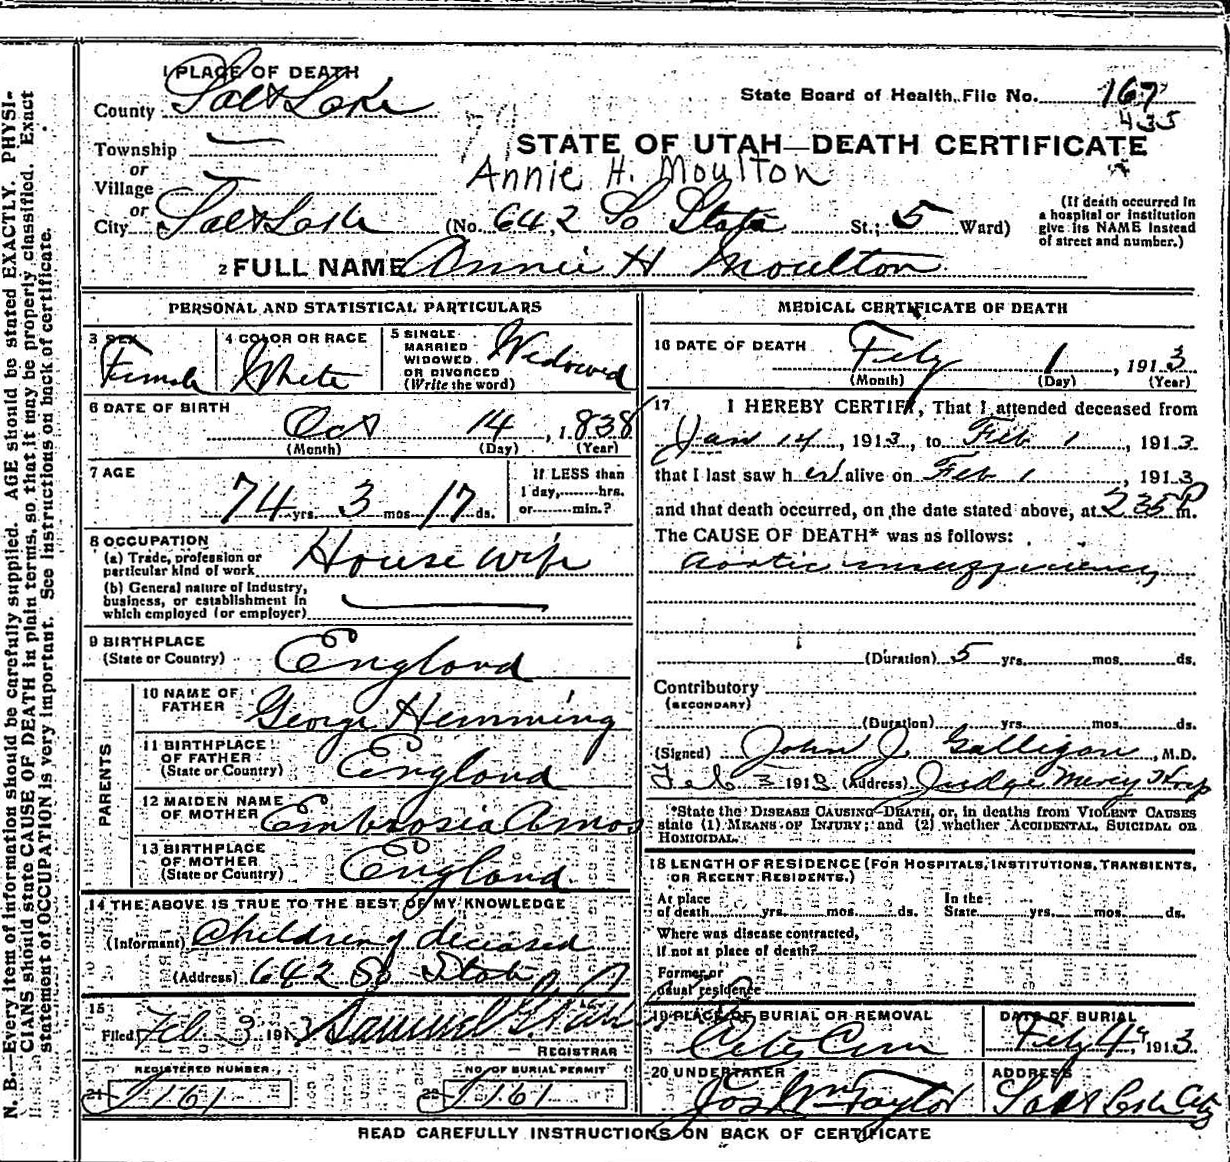 1 PLACE OF DEATH
County Salt Lake
State Board of Health File No. 167
435
Township
or
Village
or
City Salt Lake (No. 642 So State St.; 5 Ward)
STATE OF UTAH—DEATH CERTIFICATE
Annie H. Moulton
(If death occurred in a hospital or institution give its NAME instead of street and number.)
2 FULL NAME Annie H Moulton
PERSONAL AND STATISTICAL PARTICULARS
3 SEX Female
4 COLOR OR RACE White
5 SINGLE MARRIED WIDOWED OR DIVORCED (Write the word) Widowed
6 DATE OF BIRTH Oct 14, 1838
(Month) (Day) (Year)
7 AGE 74 yrs. 3 mos 17 ds.
If LESS than 1 day, hrs. or min.?
8 OCCUPATION
(a) Trade, profession or particular kind of work House wife
(b) General nature of Industry, business, or establishment in which employed (or employer)
9 BIRTHPLACE (State or Country) England
PARENTS
10 NAME OF FATHER George Hemming
11 BIRTHPLACE OF FATHER (State or Country) England
12 MAIDEN NAME OF MOTHER Embrosia Amos
13 BIRTHPLACE OF MOTHER (State or Country) England
14 THE ABOVE IS TRUE TO THE BEST OF MY KNOWLEDGE
(Informant) Children of deceased
(Address) 642 So State
15 Filed Feb 3 1913 Samuel G.
REGISTRAR
REGISTERED NUMBER
21 J 161
NO OF BURIAL PERMIT
22 J 161
MEDICAL CERTIFICATE OF DEATH
16 DATE OF DEATH Feby 1, 1913
(Month) (Day) (Year)
17 I HEREBY CERTIFY, That I attended deceased from
Jan 14, 1913, to Feb 1, 1913
that I last saw her alive on Feb 1, 1913
and that death occurred, on the date stated above, at 235 P m.
The CAUSE OF DEATH* was as follows:
aortic insufficiency
(Duration) 5 yrs. mos. ds.
Contributory
(SECONDARY)
(Duration) yrs. mos. ds.
(Signed) John J. Galligan, M.D.
Feb 3 1913 (Address) Judge Mercy Hosp
*State the DISEASE CAUSING DEATH, or, in deaths from VIOLENT CAUSES state (1) MEANS OF INJURY; and (2) whether ACCIDENTAL, SUICIDAL OR HOMICIDAL.
18 LENGTH OF RESIDENCE (FOR HOSPITALS, INSTITUTIONS, TRANSIENTS, OR RECENT RESIDENTS.)
At place of death yrs. mos. ds. In the State yrs. mos. ds.
Where was disease contracted, if not at place of death?
Former or usual residence
19 PLACE OF BURIAL OR REMOVAL City Cem
DATE OF BURIAL Feby 4, 1913
20 UNDERTAKER Jos Wm Taylor
ADDRESS Salt Lake City
READ CAREFULLY INSTRUCTIONS ON BACK OF CERTIFICATE
N. B.—Every item of information should be carefully supplied. AGE should be stated EXACTLY. PHYSI-
CIANS should state CAUSE OF DEATH in plain terms, so that it may be properly classified. Exact
statement of OCCUPATION is very important. See instructions on back of certificate.